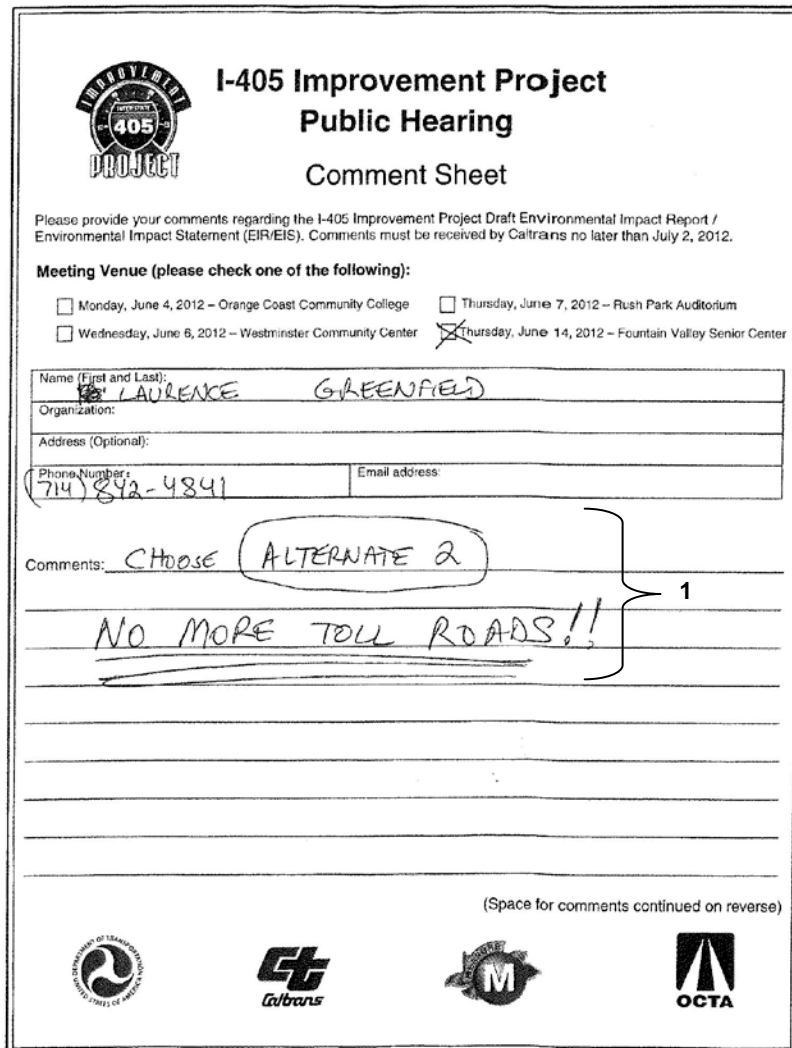 IMPROVEMENT
INTERSTATE
405
PROJECT
I-405 Improvement Project
Public Hearing
Comment Sheet
Please provide your comments regarding the I-405 Improvement Project Draft Environmental Impact Report /
Environmental Impact Statement (EIR/EIS). Comments must be received by Caltrans no later than July 2, 2012.
Meeting Venue (please check one of the following):
Monday, June 4, 2012 – Orange Coast Community College
Thursday, June 7, 2012 – Rush Park Auditorium
Wednesday, June 6, 2012 – Westminster Community Center
Thursday, June 14, 2012 – Fountain Valley Senior Center
Name (First and Last):
LAURENCE GREENFIELD
Organization:
Address (Optional):
Phone Number:
(714) 842-4841
Email address:
Comments: CHOOSE ALTERNATE 2
1
NO MORE TOLL ROADS!!
(Space for comments continued on reverse)
DEPARTMENT OF TRANSPORTATION
UNITED STATES OF AMERICA
Ct
Caltrans
MEASURE
M
OCTA